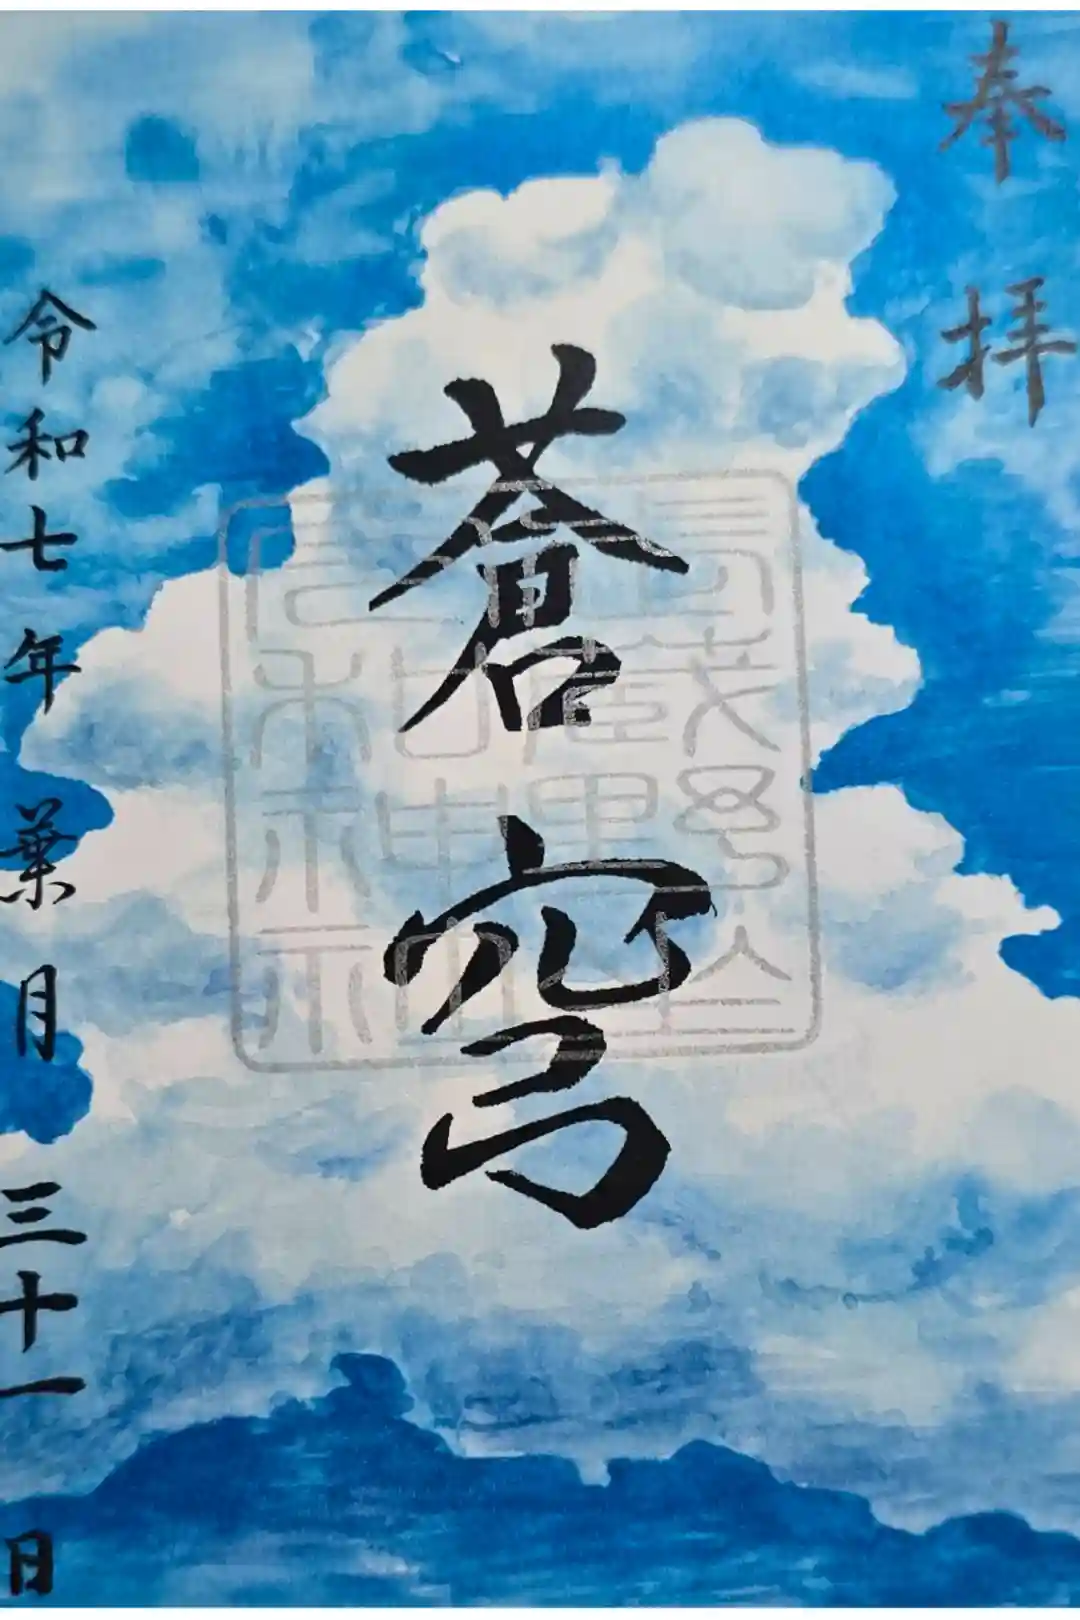 奉拝
蒼穹
令和七年葉月三十一日